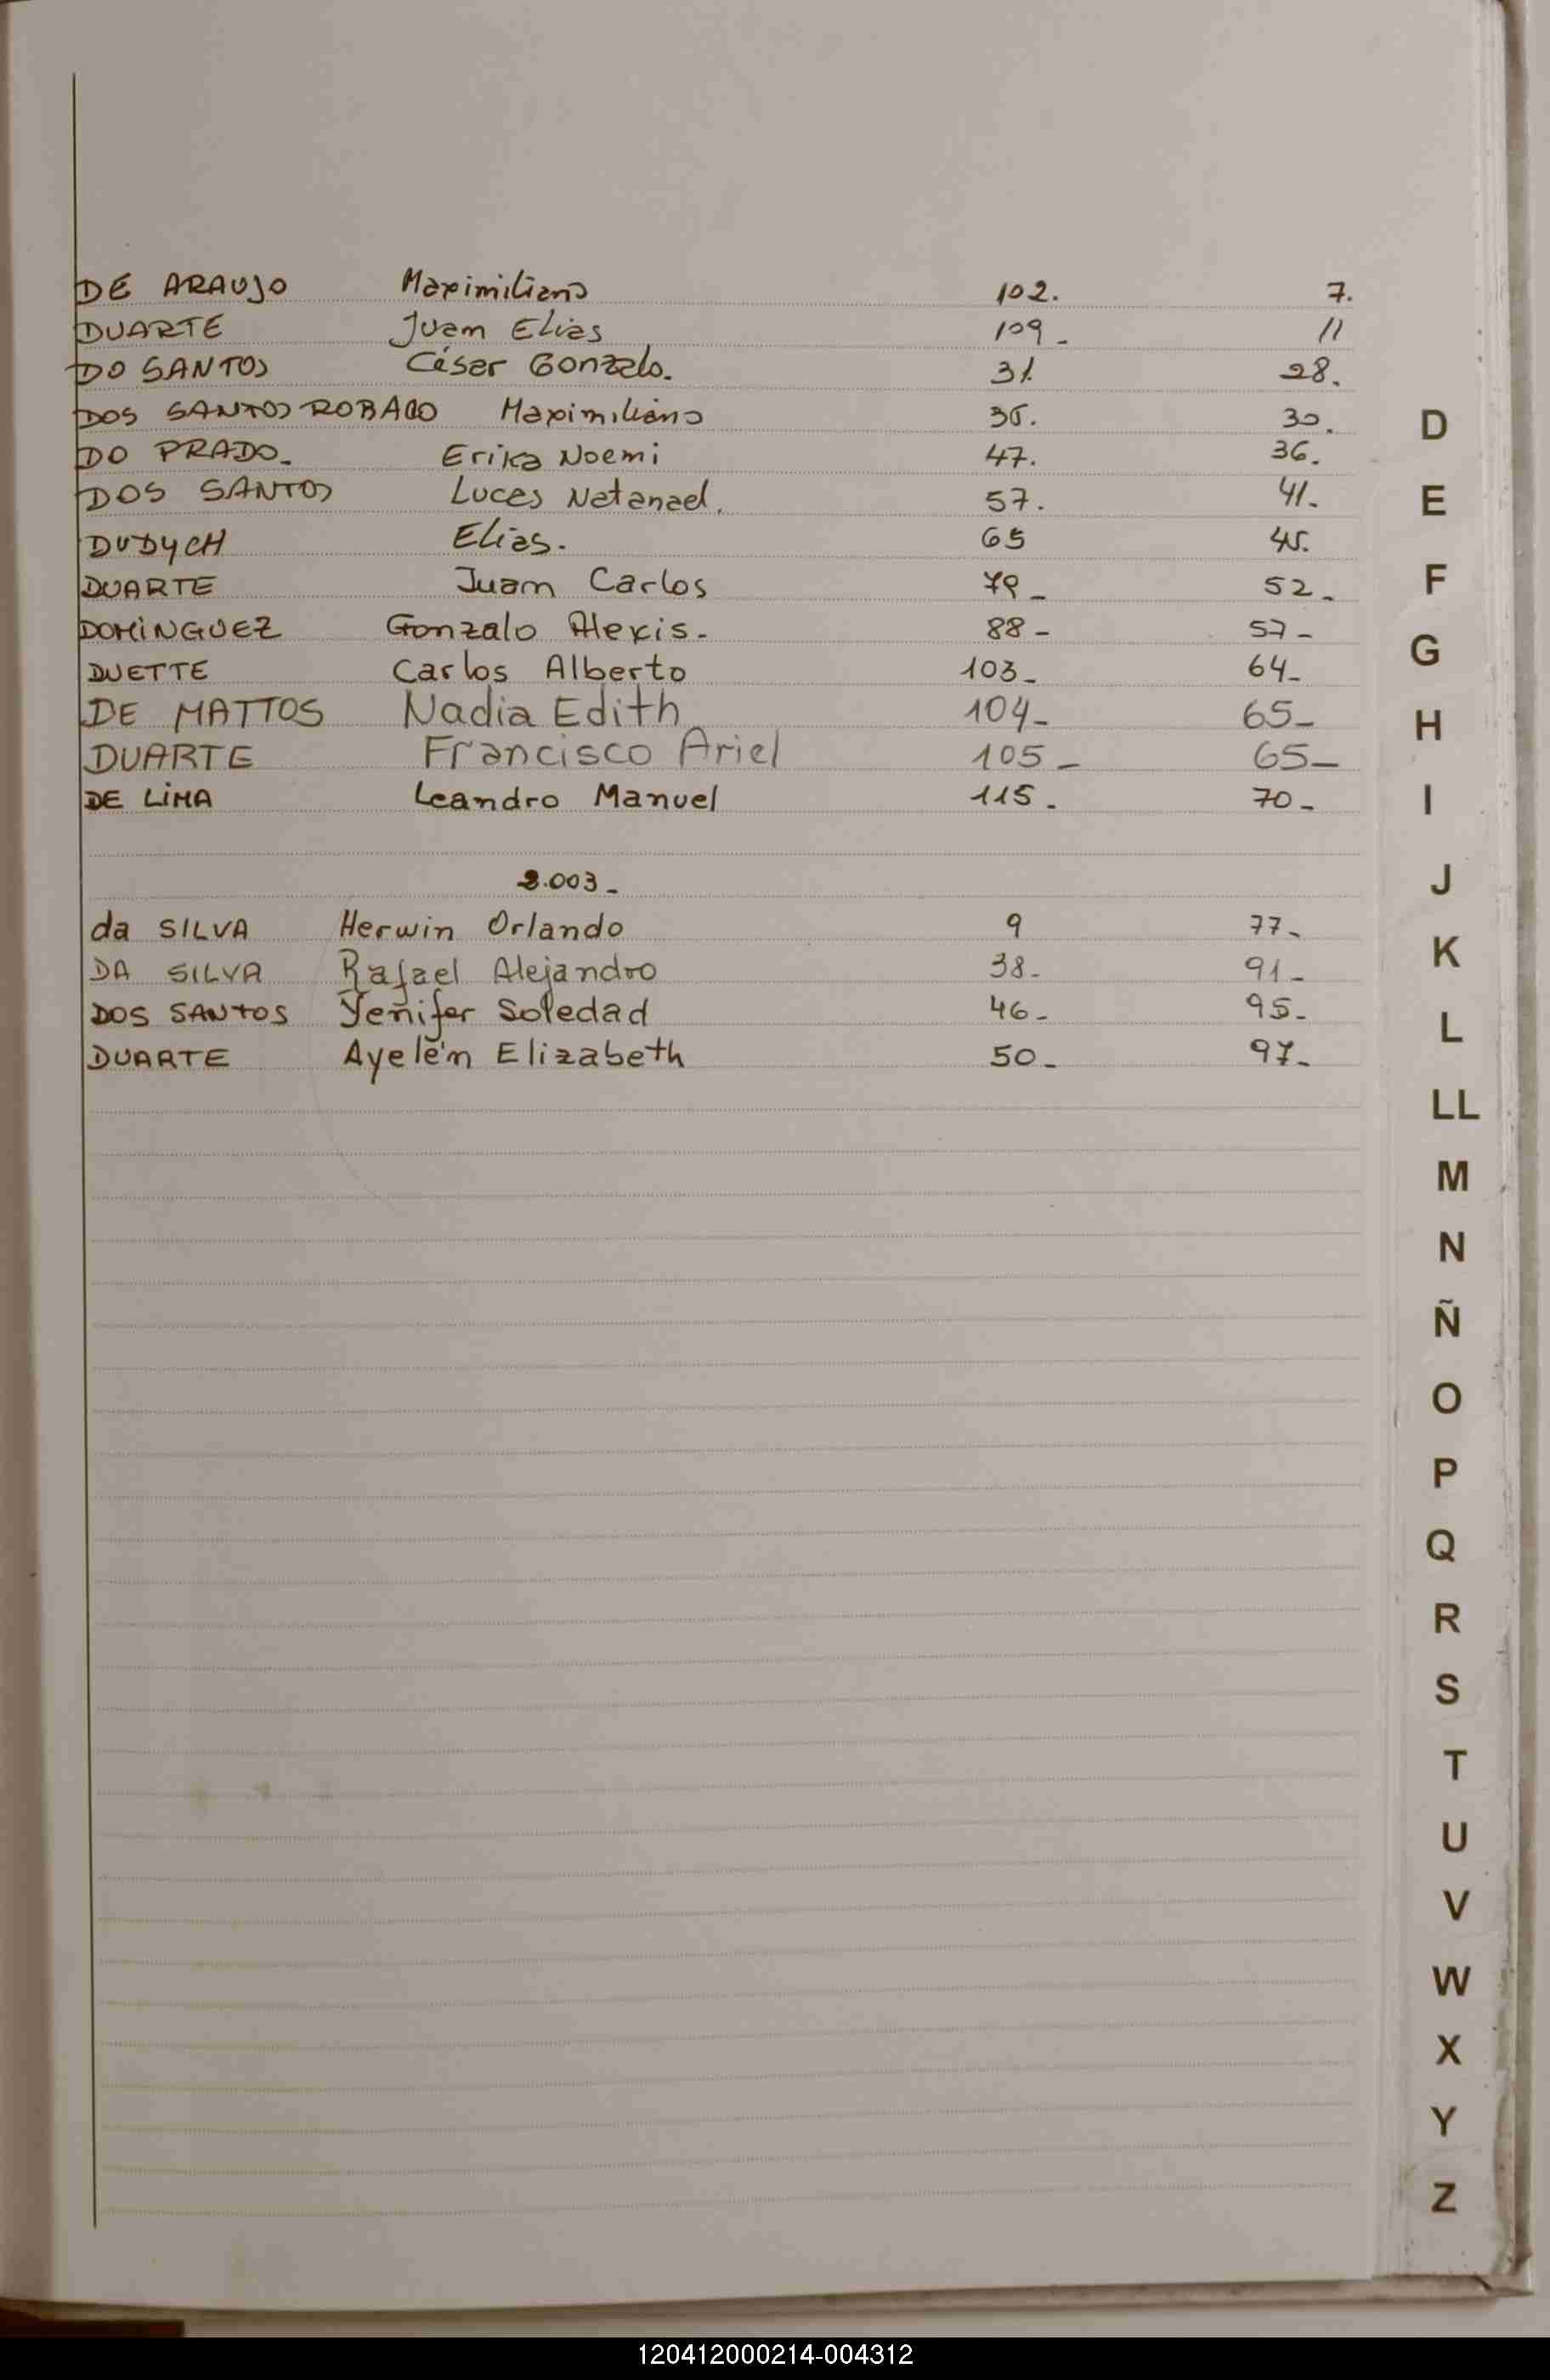 DE ARAUJO Maximiliano 102. 7.
DUARTE Juan Elias 109- 11
DO SANTOS César Gonzalo. 31. 28.
DOS SANTOS Maximiliano 30.
DO PRADO- Erika Noemi 47. 36.
DOS SANTOS Lucas Natanael. 57. 41-
DUDYCH Elias. 65 45.
DUARTE Juan Carlos 79- 52-
DOMINGUEZ Gonzalo Alexis- 88- 57-
DUETTE Carlos Alberto 103- 64-
DE MATTOS Nadia Edith 104- 65-
DUARTE Francisco Ariel 105- 65-
DE LiMA Leandro Manuel 115. 70-
2.003-
da SILVA Herwin Orlando 9 77-
DA SILVA Rafael Alejandro 38- 91-
DOS SANTOS Yenifer Soledad 46- 95-
DUARTE Ayelén Elizabeth 50- 97-
D
E
F
G
H
I
J
K
L
LL
M
N
Ñ
O
P
Q
R
S
T
U
V
W
X
Y
Z
120412000214-004312